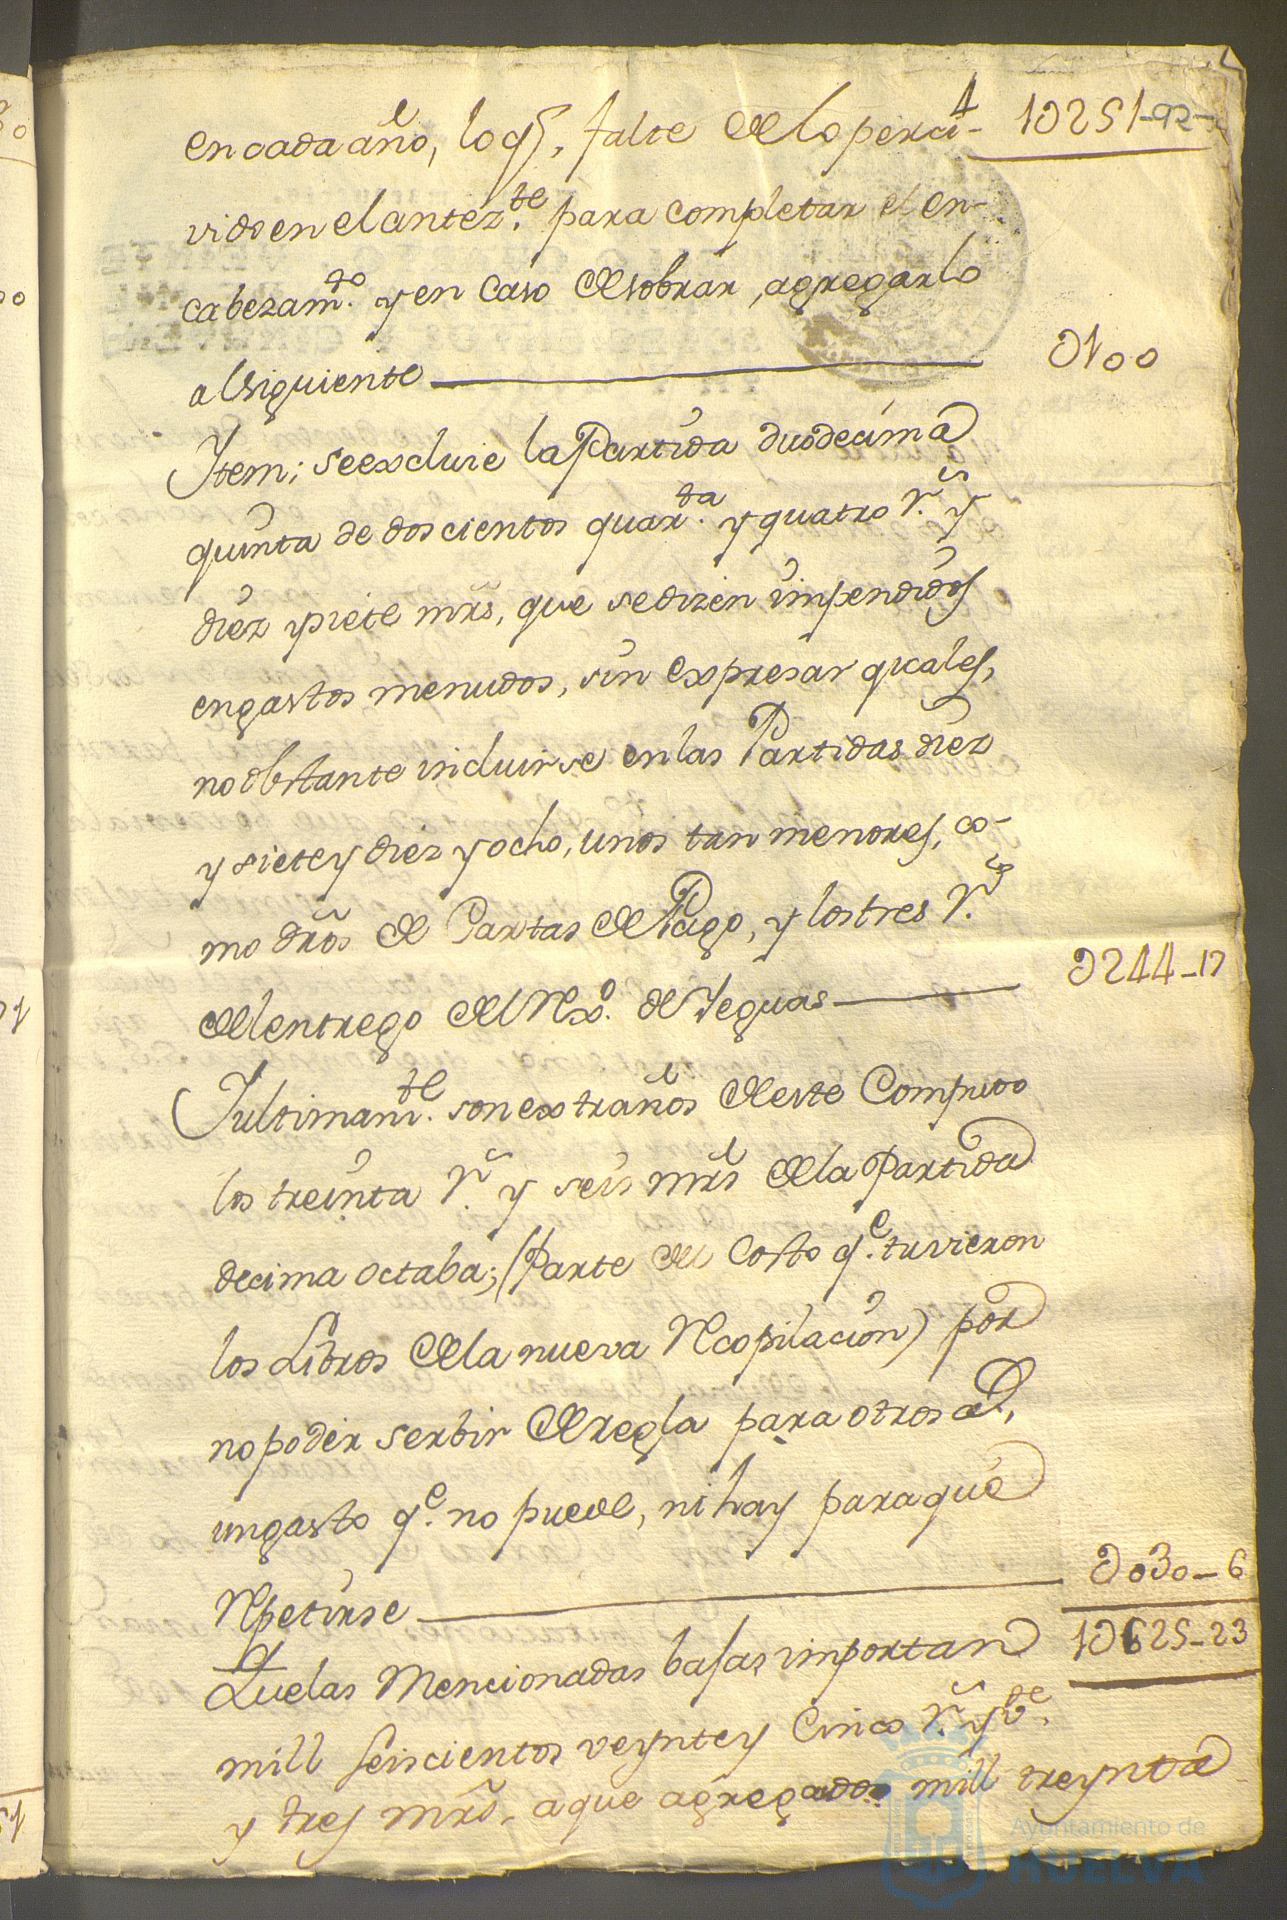 4
en cada año, lo q.e falte de lo perci- 1D251-92-
vido en el antez.te para completar el en-
cabezam.to y en caso de sobrar, agregarlo
al siguiente D100
Item; se excluie la Partida duodecima
quinta de doscientos quar.ta y quatro r.s y
diez y siete mrs, que se dizen impendidos
en gastos menudos, sin expresar quales,
no obstante incluirse en las Partidas diez
y siete y diez y ocho, unos tan menores, co-
mo dros de Cartas de Pago, y los tres r.s
del entrego del Rex.o de Yeguas D244-17
Iultimam.te son extraños de este Computo
los treinta r.s y seis mrs de la Partida
decima octaba; (Parte del Costo q.e tuvieron
los Libros de la nueva Recopilacion) por
no poder serbir de regla para otros a.s,
un gasto q.e no puede, ni hay para que
Repetirse D030-6
Que las Mencionadas bajas importan 1D625-23
mill seiscientos veynte y Cinco r.s y v.te
y tres mrs. a que agregados mill treynta
Ayuntamiento de
HUELVA